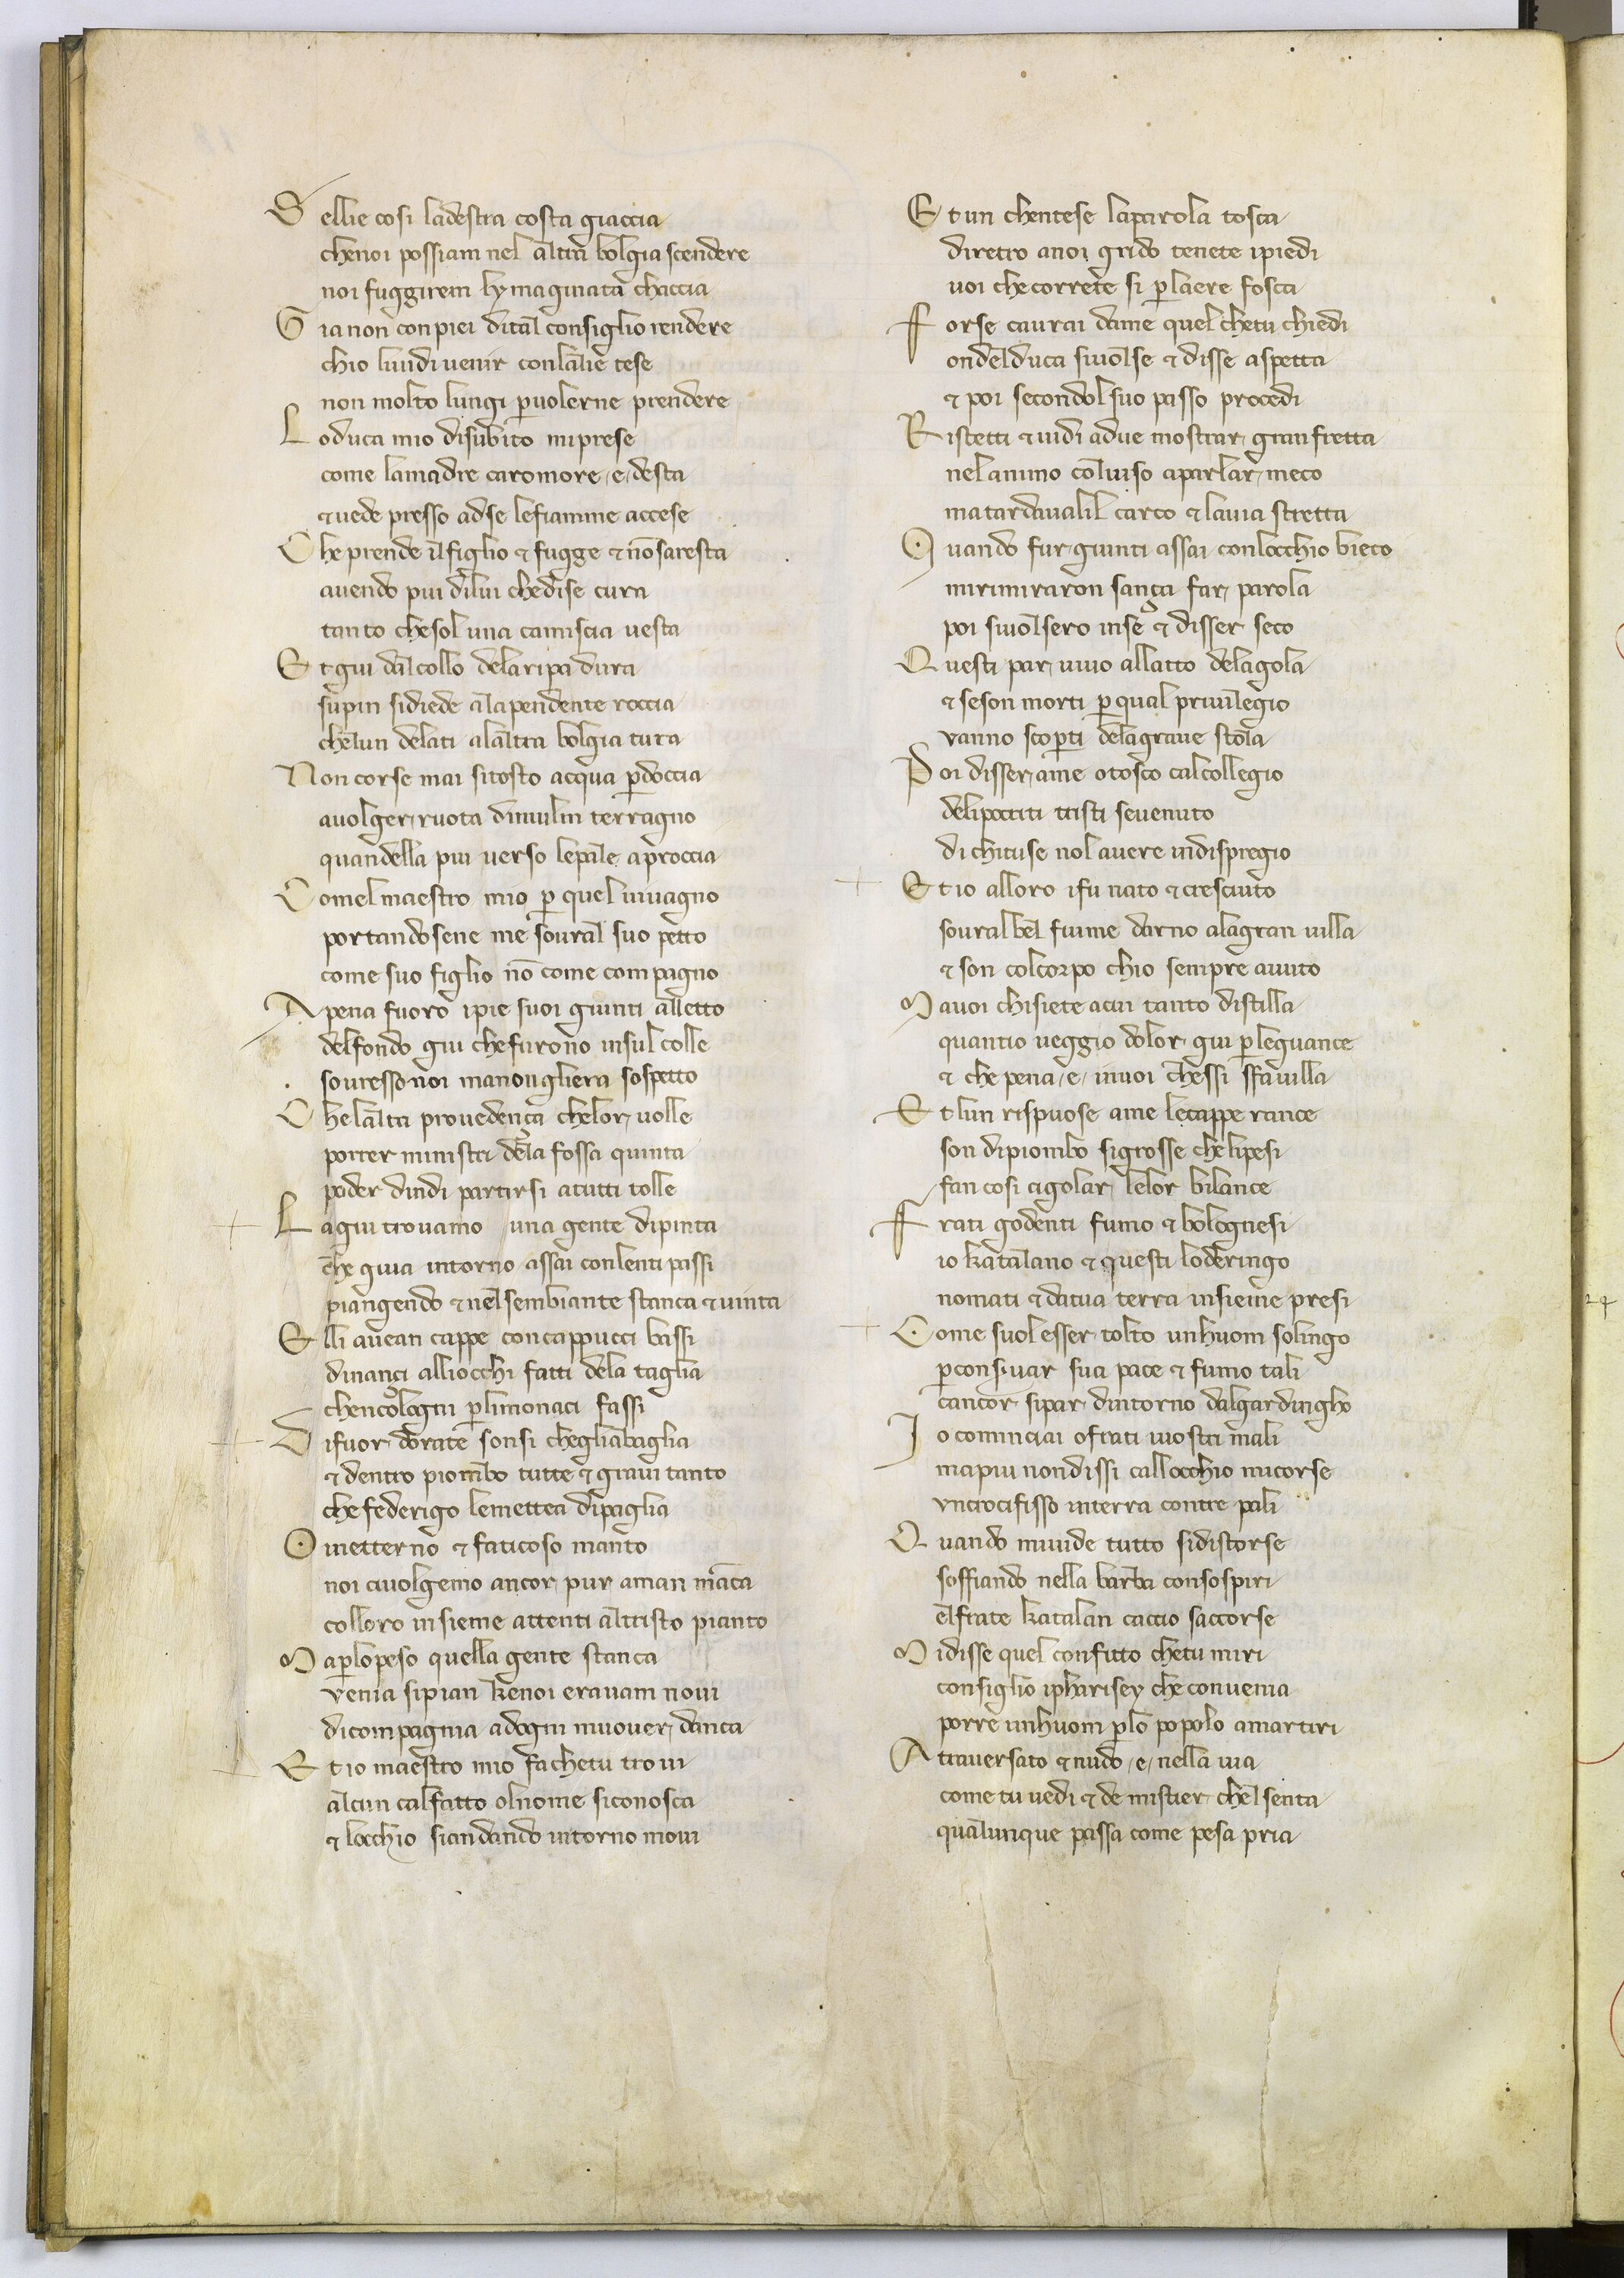 S ellie cosi ladestra costa giaccia
chenoi possiam nel altra bolgia scendere
noi fuggirem lymaginata chaccia
G ia non conpiei dital consiglio rendere
chio liuidi uenir conlalie tese
non molto lungi p uolerne prendere
L oduca mio disubito miprese
come lamadre caromore e desta
& uede presso adse lefiamme accese
C he prende il figlio & fugge & nō saresta
auendo piu dilui chedise cura
tanto chesol una camiscia uesta
E t giu dal collo delaripa dura
supin sidiede ala pendente roccia
chelun delati alaltra bolgia tura
N on corse mai sitosto acqua p doccia
auolger ruota dimulin terragno
quandella piu uerso lepale aproccia
C omel maestro mio p quel uiuagno
portandosene me soural suo petto
come suo figlio nō come compagno
A pena fuoro ipie suoi giunti alletto
delfondo giu chefurono insul colle
souresso noi manonugliera sospetto
C he lalta prouedença chelor uolle
porrer ministri dela fossa quinta
poder dindi partirsi atutti tolle
L agiu trouamo una gente dipinta
che giua intorno assai conlenti passi
piangendo & nel sembiante stanca & uinta
E lli auean cappe concappucci bassi
dinançi alliocchi fatti dela taglia
chencologni p limonaci fassi
D ifuor dorate sonsi chegliabaglia
& dentro piombo tutte & graui tanto
che federigo lemettea dipaglia
O inetterno & faticoso manto
noi ciuolgemo ancor pur aman māca
colloro insieme attenti altristo pianto
M a p lopeso quella gente stanca
venia sipian kenoi erauam noui
dicompagnia adogni muouer danca
E t io maestro mio fachetu troui
alcun calfatto olnome siconosca
& locchio siandando intorno moui
E t un chentese laparola tosca
diretro anoi grido tenete ipiedi
uoi checorrete si p laere fosca
F orse caurai dame quel chetu chiedi
ondelduca siuolse & disse aspetta
& poi secondol suo passo procedi
R istetti & uidi adue mostrar gran fretta
nel animo coluiso aparlar meco
ma tardaualil carco & lauia stretta
Q uando fur giunti assai conlocchio bieco
mirimiraron sança far parola
poi siuolsero inse & disser seco
Q uesti par uiuo allatto delagola
& seson morti p qual priuilegio
vanno scopti delagraue stola
P oi disser ame otosco calcollegio
delipocriti tristi seuenuto
di chituse nol auere indispregio
E t io alloro ifu nato & cresciuto
soural bel fiume darno alagran uilla
& son colcorpo chio sempre auuto
M auoi chisiete acui tanto distilla
quantio ueggio dolor giu p leguance
& che pena e inuoi chessi sfauilla
E t lun rispuose ame lecappe rance
son dipiombo sigrosse chelipesi
fan cosi cigolar lelor bilance
F rati godenti fumo & bolognesi
io katalano & questi loderingo
nomati & datua terra insieme presi
C ome suol esser tolto unhuom solingo
p conseruar sua pace & fumo tali
cancor sipar dintorno dalgardingho
I o cominciai ofrati iuostri mali
mapiu nondissi callocchio micorse
vncrocifisso interra contre pali
Q uando miuide tutto sidistorse
soffiando nella barba consospiri
elfrate katalan caccio saccorse
M idisse quel confitto chetu miri
consiglio ipharisey che conuenia
porre unhuom p lo popolo amartiri
A trauersato & nudo e nella uia
come tu uedi & de mistier chel senta
qualunque passa come pesa pria
24